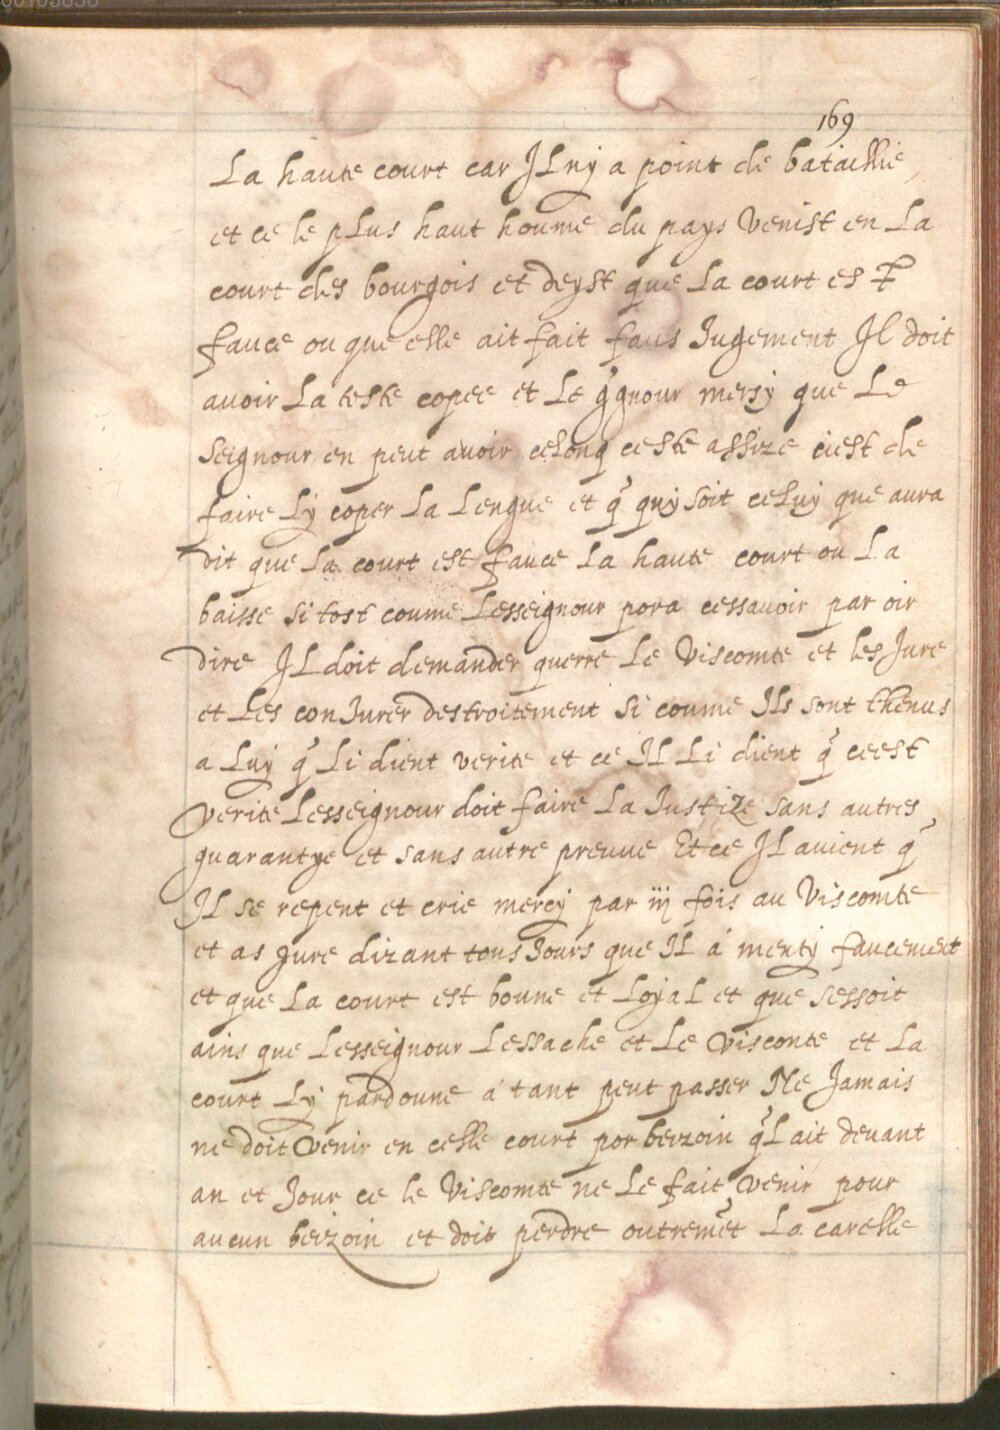 169
La haute court car JL nÿ a point de bataillie
et ce le plus haut houme du pays Venist en La
court des bourgois et deyst que La court es t
fauce ou que elle ait fait faus Jugement Jl doit
auoir La teste copee et Le g̃gnour mersÿ que Le
Seignour en peut auoir celonq ceste assize ciest de
faire Lÿ coper La Lengue et q̃ quÿ soit celuÿ que aura
dit que La court est fauce La haute court ou La
baisse si tost coume Lesseignour pora cessauoir par oir
dire JL doit demander querre Le Viscomte et les Jure
et Les conJurer destroitement si coume Jls sont thenus
a Luÿ q̃ Li dient verite et ce JL Li dient q̃ ceest
verite Lesseignour doit faire La Justize sans autres
guarantye et sans autre preuue Et ce JL auient q̃
JL se repent et crie mercÿ par iij fois au Viscomte
et as Jure dizant tous Jours que JL á mentÿ faucement
et que La court est boune et LoyaL et que sessoit
ains que Lesseignour Lessache et Le Visconte et La
court Lÿ pardoune á tant peut passer Ne Jamais
ne doit Venir en celle court por beizoin q̃L ait deuant
an et Jour ce le Viscomte ne Le fait Venir pour
aucun beizoin et doit perdre outremẽt La carelle